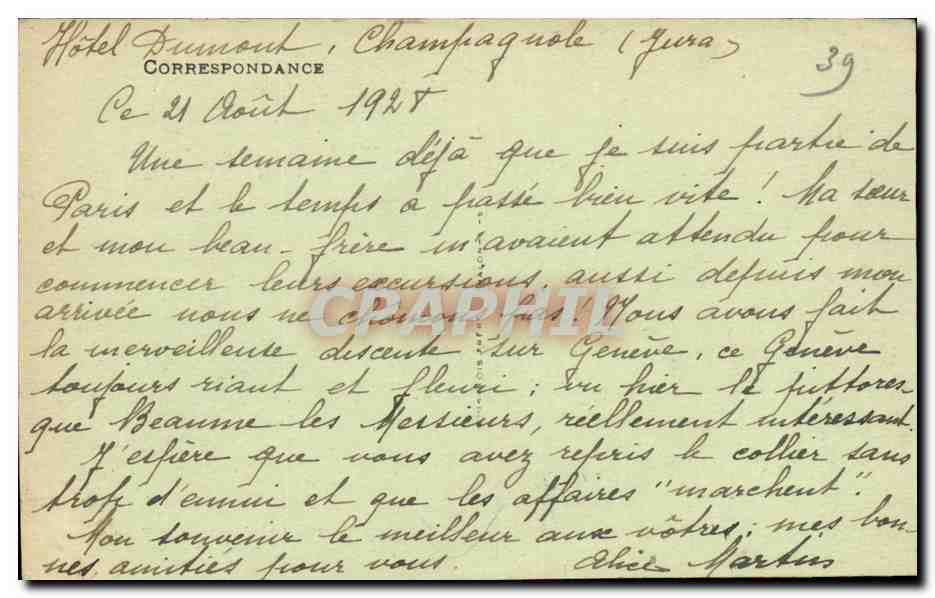 Hôtel Dumont, Champagnole (Jura)
CORRESPONDANCE
39
Ce 21 Août 1928
Une semaine déjà que je suis partie de
Paris et le temps a passé bien vite! Ma sœur
et mon beau-frère m'avaient attendu pour
commencer leurs excursions, aussi depuis mon
arrivée nous ne chômons pas! Nous avons fait
la merveilleuse descente sur Genève, ce Genève
toujours riant et fleuri; vu hier le pittores-
que Beaume les Messieurs, réellement intéressant.
J'espère que vous avez repris le collier sans
trop d'ennui et que les affaires "marchent".
Mon souvenir le meilleur aux vôtres; mes bon-
nes amitiés pour vous. Alice Martin
CPAPHIL